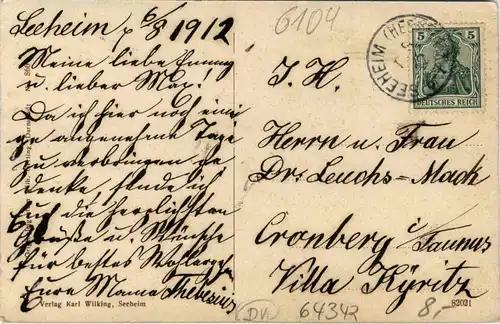 Seeheim 6/8 1912
Meine liebe Emmy
u. lieber Max!
Da ich hier noch eini-
ge angenehme Tage
zu verbringen ge-
denke, sende ich
Euch die herzlichsten
Grüße u. Wünsche
für bestes Wohlergehn
Eure Mama Thebesius
Verlag Karl Wilking, Seeheim
6104
SEEHEIM (HESSEN)
5 5
DEUTSCHES REICH
S. H.
Herrn u. Frau
Dr. Leuchs-Mack
Cronberg i/Taunus
Villa Kyritz
DV 64342
8,-
82021